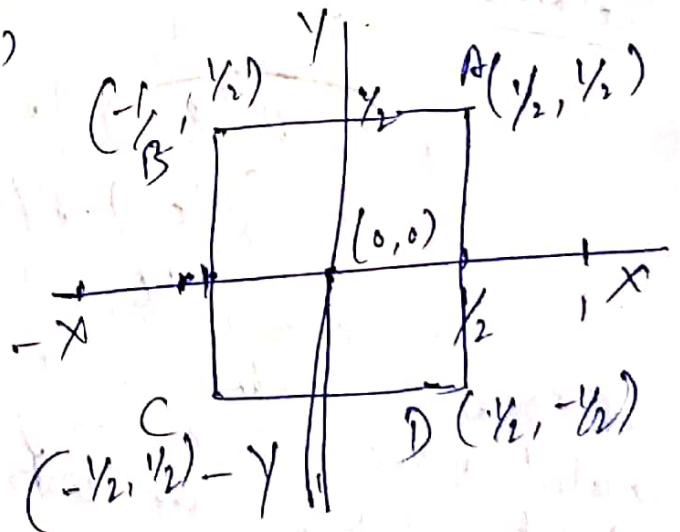 )
Y
(-1/, 1/2)
B
1/2
A(1/2, 1/2)
(0,0)
-X
1/2
1
X
C
(-1/2, 1/2)
-Y
D (1/2, -1/2)